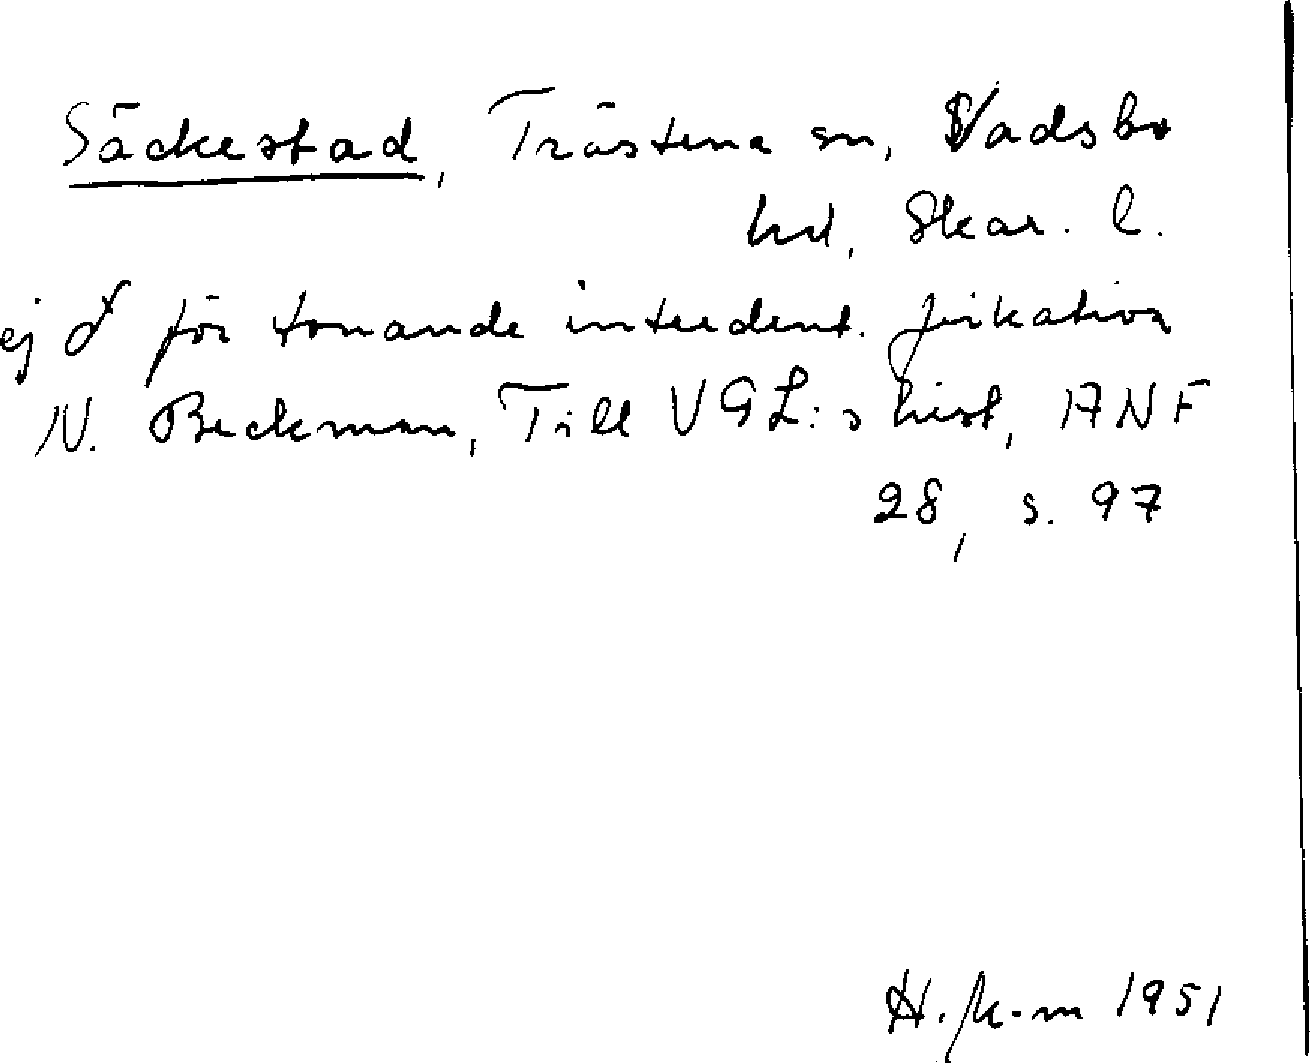 Säckestad, Trästena sn, Vadsbo
hd, Skar. l.
ej ð för tonande interdent. frikativa
N. Beckman, Till VGL:s hist, ANF
28, s. 97
1951